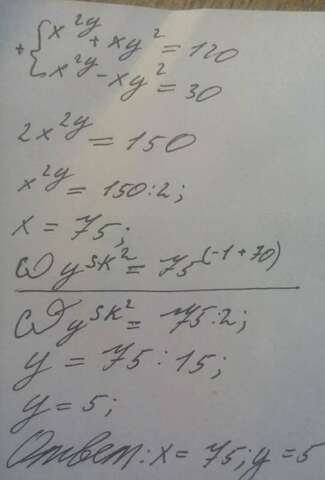 + { x²ʸ + xy² = 120
x²ʸ - xy² = 30
2x²ʸ = 150
x²ʸ = 150:2;
x = 75;
yˢᵏ² = 75⁽⁻¹⁺⁷⁰⁾
yˢᵏ² = 75:2;
y = 75:15;
y = 5;
Ответ: x = 75; y = 5